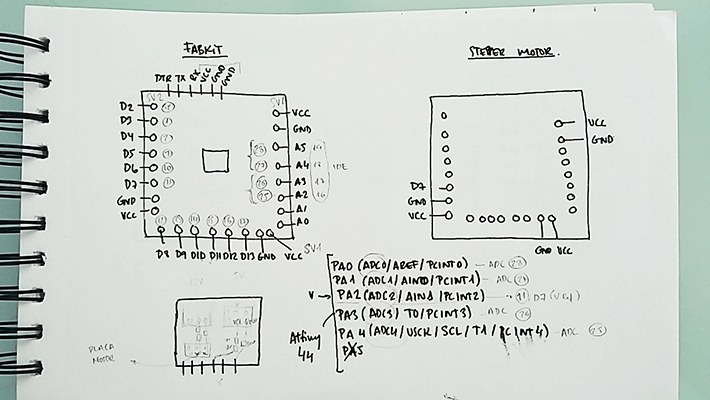 FABKIT
STEPPER MOTOR.
DTR TX RX VCC GND GND
SV2
SV1
D2
D3
D4
D5
D6
D7
GND
VCC
VCC
GND
A5
A4
A3
A2
A1
A0
IDE
D8 D9 D10 D11 D12 D13 GND VCC SV1
VCC
GND
D7
GND
VCC
GND VCC
PA0 (ADC0/AREF/PCINT0) — ADC
PA1 (ADC1/AIN0/PCINT1) — ADC
V → PA2 (ADC2/AIN1/PCINT2)
PA3 (ADC3/T0/PCINT3) — ADC
PA4 (ADC4/USCK/SCL/T1/PCINT4) — ADC
Attiny
44
PLACA
MOTOR